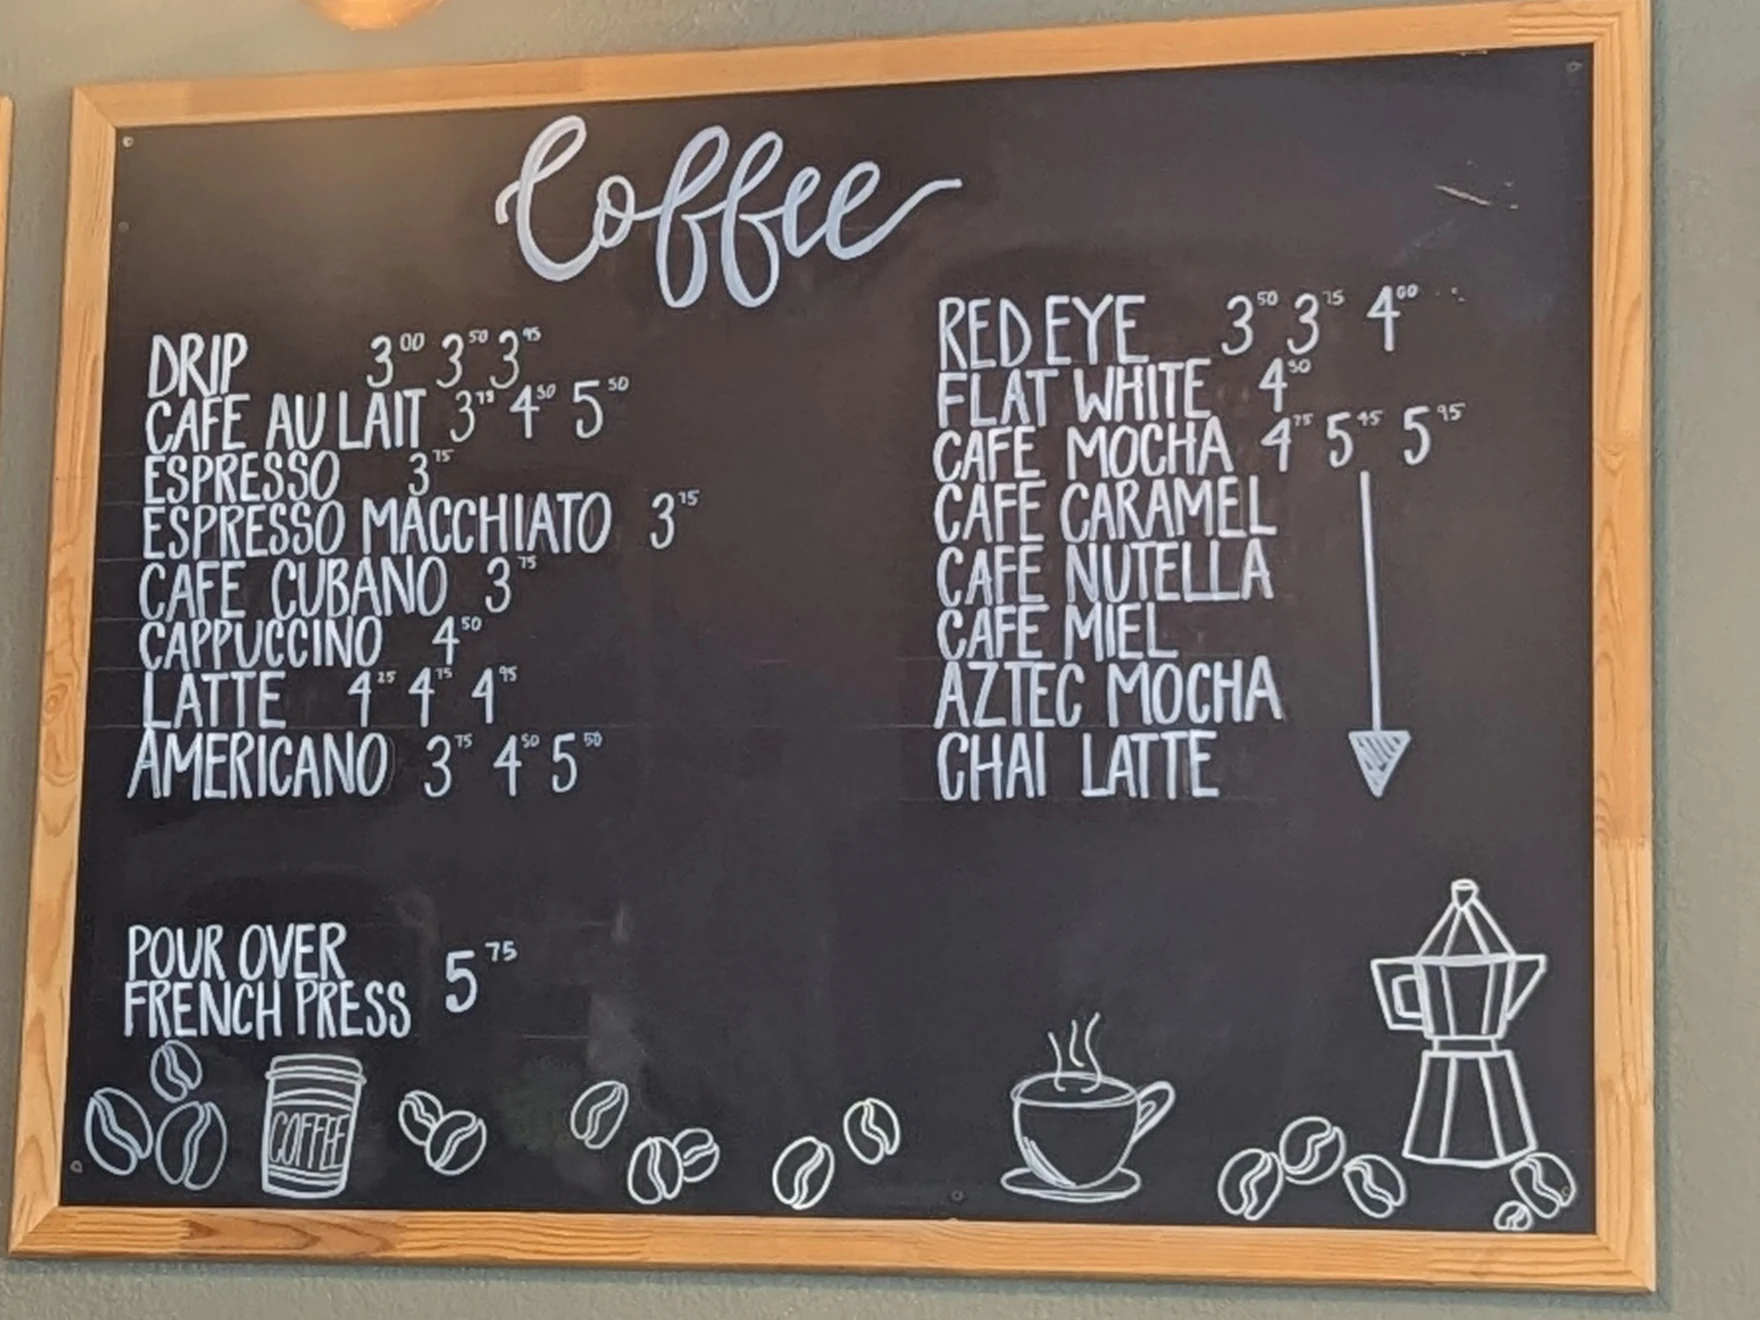 Coffee
DRIP 3 00 3 50 3 95
CAFE AU LAIT 3 75 4 50 5 50
ESPRESSO 3 75
ESPRESSO MACCHIATO 3 75
CAFE CUBANO 3 75
CAPPUCCINO 4 50
LATTE 4 25 4 75 4 95
AMERICANO 3 75 4 50 5 50
POUR OVER
FRENCH PRESS 5 75
COFFEE
RED EYE 3 50 3 75 4 00
FLAT WHITE 4 50
CAFE MOCHA 4 75 5 45 5 95
CAFE CARAMEL
CAFE NUTELLA
CAFE MIEL
AZTEC MOCHA
CHAI LATTE